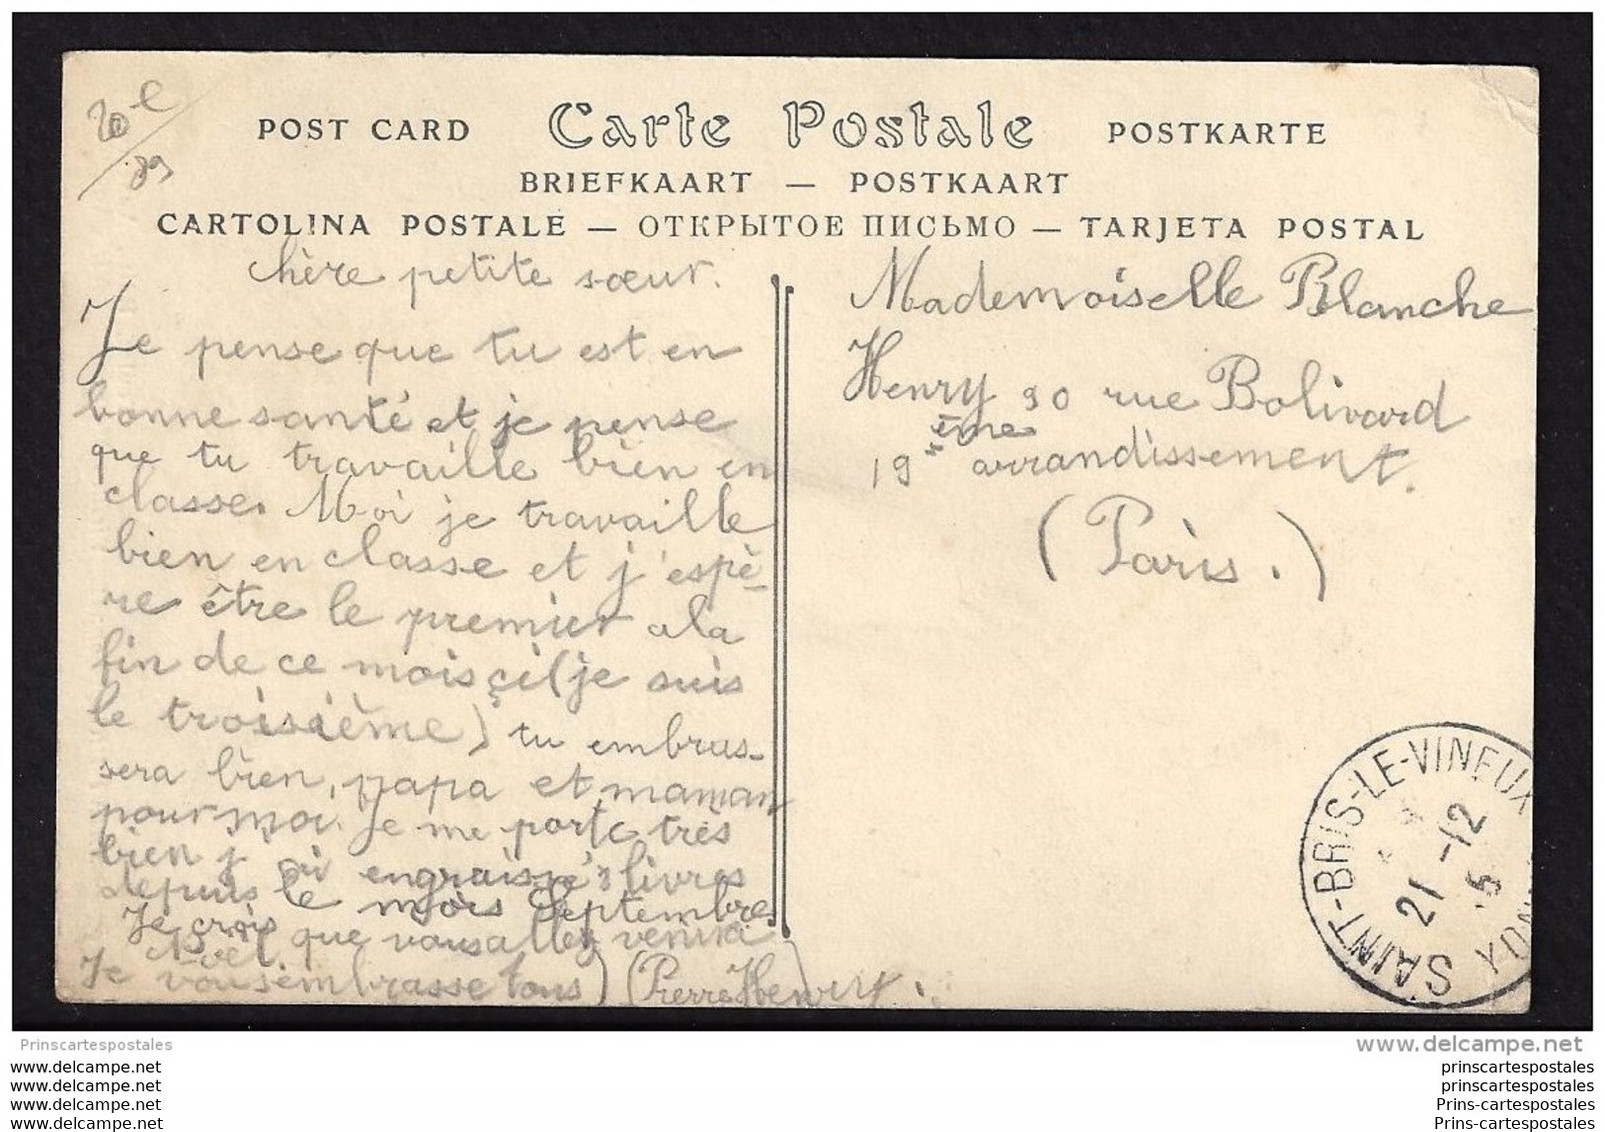 20 €
89
POST CARD Carte Postale POSTKARTE
BRIEFKAART — POSTKAART
CARTOLINA POSTALE — ОТКРЫТОЕ ПИСЬМО — TARJETA POSTAL
chère petite sœur.
Je pense que tu est en
bonne santé et je pense
que tu travaille bien en
classe. Moi je travaille
bien en classe et j'espè-
re être le premier a la
fin de ce mois çi (je suis
le troisième) tu embras-
sera bien, papa et maman
pour moi. Je me porte très
bien j'ai engraissé 3 livres
depuis le mois Septembre
Je crois que vous allez venir à
Noël.
Je vous embrasse tous) (Pierre Henry.
Mademoiselle Blanche
Henry 90 rue Bolivard
19 ème arrandissement.
(Paris.)
SAINT-BRIS-LE-VINEUX
21 -12
5
YONNE
Prinscartespostales
www.delcampe.net
www.delcampe.net
www.delcampe.net
www.delcampe.net
www.delcampe.net
prinscartespostales
prinscartespostales
Prins-cartespostales
Prins-cartespostales